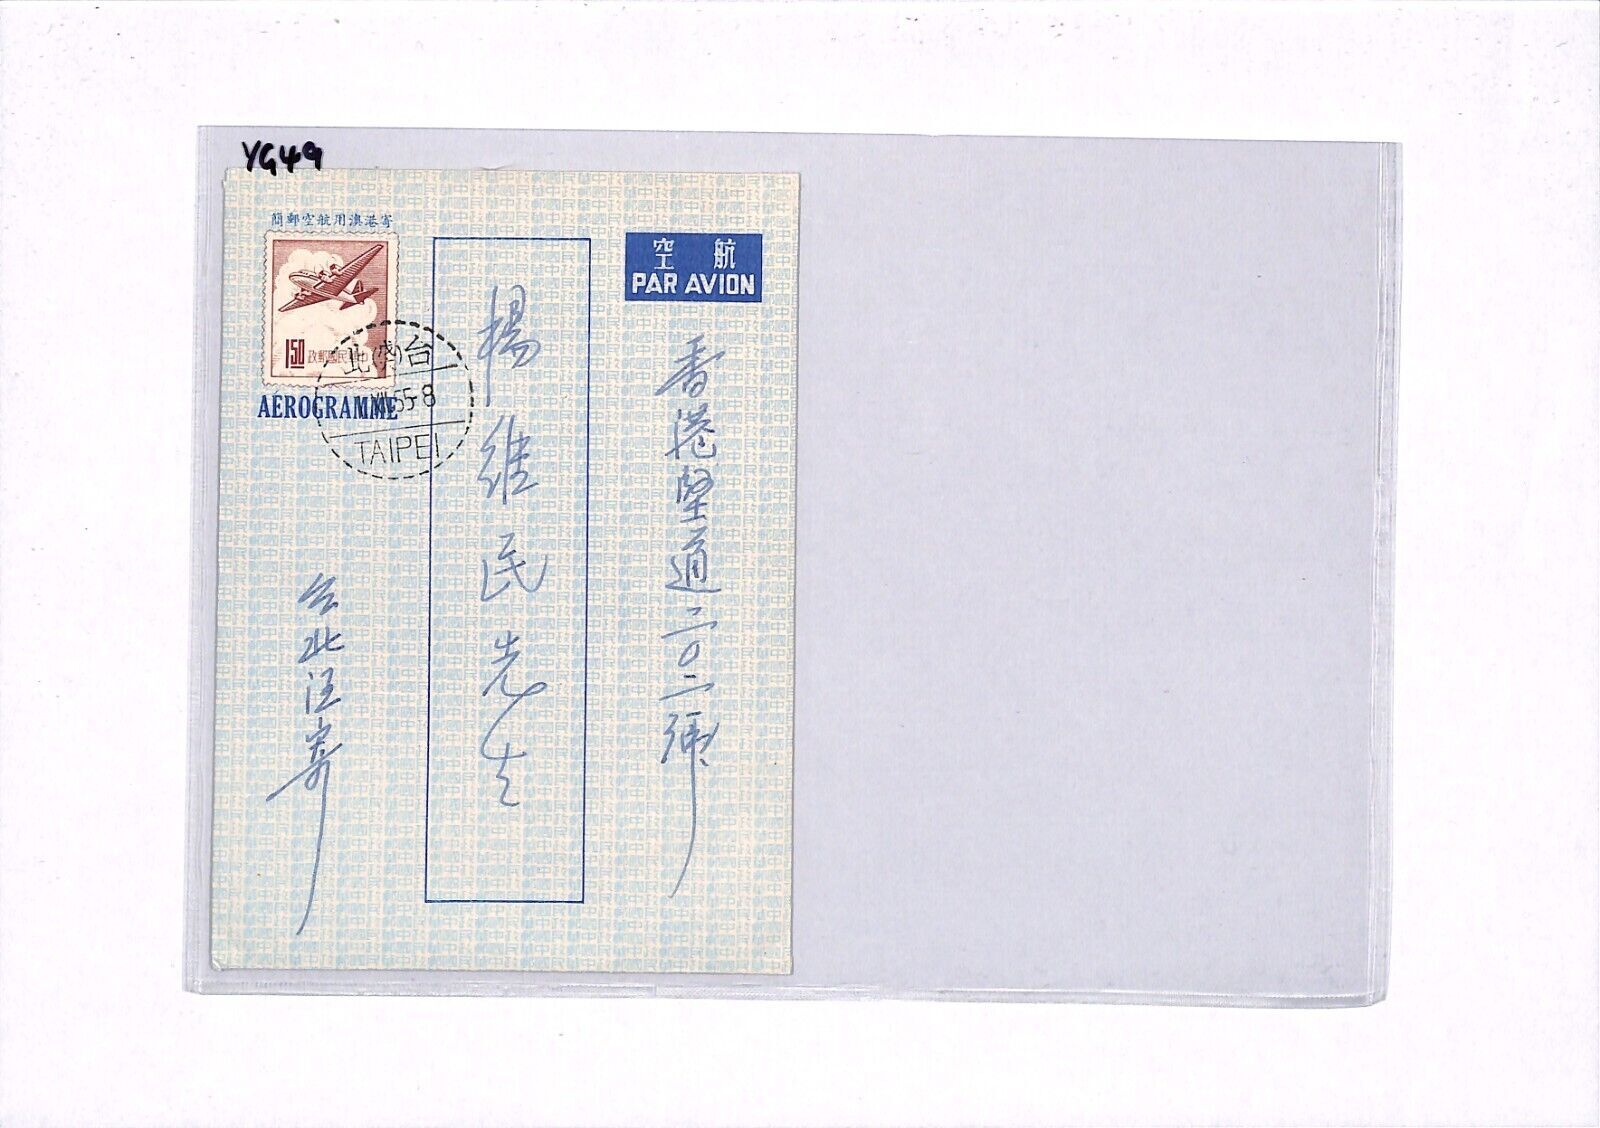 YG49
簡郵空航用澳港寄
政郵國民華中
1.50
AEROGRAMME
台 北
VII.55-8
TAIPEI
空 航
PAR AVION
香港堅道二〇二號
楊維民先生
台北汪寄